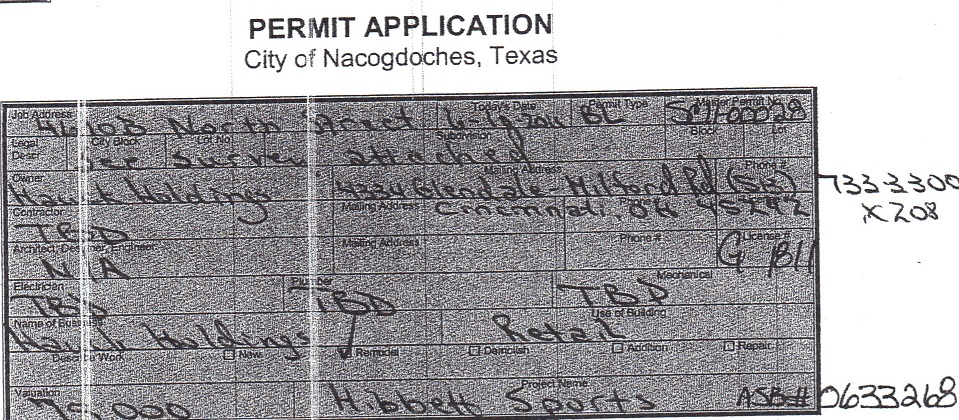 PERMIT APPLICATION
City of Nacogdoches, Texas
Job Address Today's Date Permit Type Master Permit No
North Street BL
Legal Desc. City Block Lot No Subdivision Block Lot
See Survey attached
Owner Mailing Address Phone #
Holdings 4334 Glendale-Milford Rd (513) 733-3300
Contractor Mailing Address Cincinnati, OH 45242 x 208
TBD
Architect, Designer, Engineer Mailing Address Phone # License #
N/A G
Electrician Plumber Mechanical
TBD TBD TBD
Name of Business Use of Building
Holdings Retail
Describe Work New Remodel Demolish Addition Repair
Valuation Project Name
Hibbett Sports ASB# 0633268